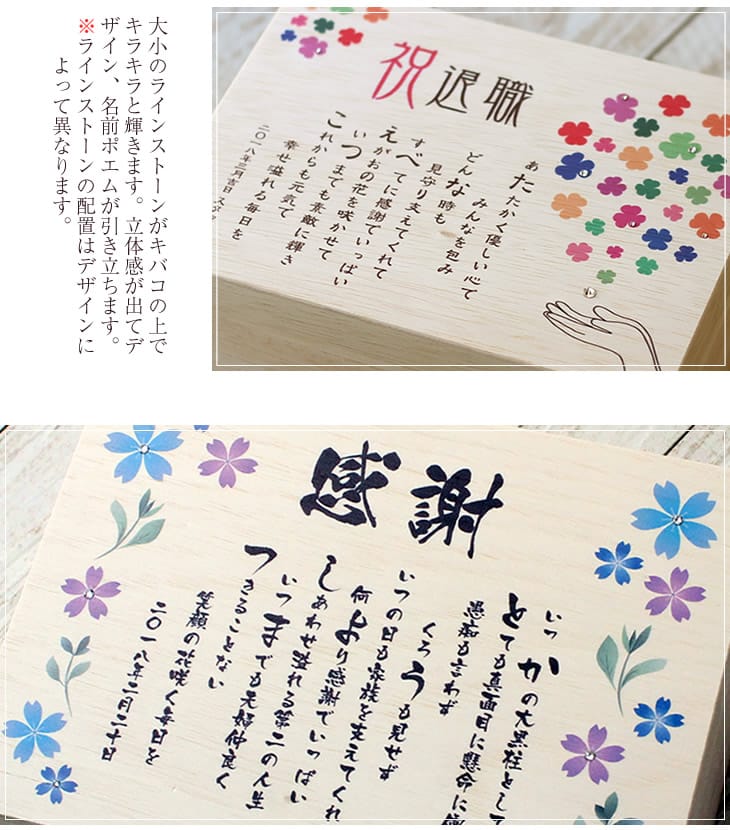 大小のラインストーンがキバコの上で
キラキラと輝きます。立体感が出てデ
ザイン、名前ポエムが引き立ちます。
※ラインストーンの配置はデザインに
よって異なります。
祝退職
あたたかく優しい心で
みんなを包み
どんな時も
見守り支えてくれて
すべてに感謝でいっぱい
えがおの花を咲かせて
いつまでも素敵に輝き
これからも元気で
幸せ溢れる毎日を
二〇一八年三月吉日
感謝
いつかの大黒柱として
とても真面目に懸命に
愚痴も言わず
くろうも見せず
いつの日も家族を支えてくれ
何より感謝でいっぱい
しあわせ溢れる第二の人生
いつまでも夫婦仲良く
つきることない
笑顔の花咲く毎日を
二〇一八年二月二十日